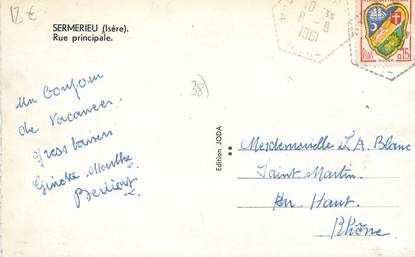 12 €
SERMERIEU (Isère).
Rue principale.
10
8 - 8
1961
0,15
ALGER
38)
un bonjour
de vacances
gros baisers
Ginette Marthe
Edition JODA
Mesdemoiselle L A Blanc
Saint Martin
En Haut
Rhône